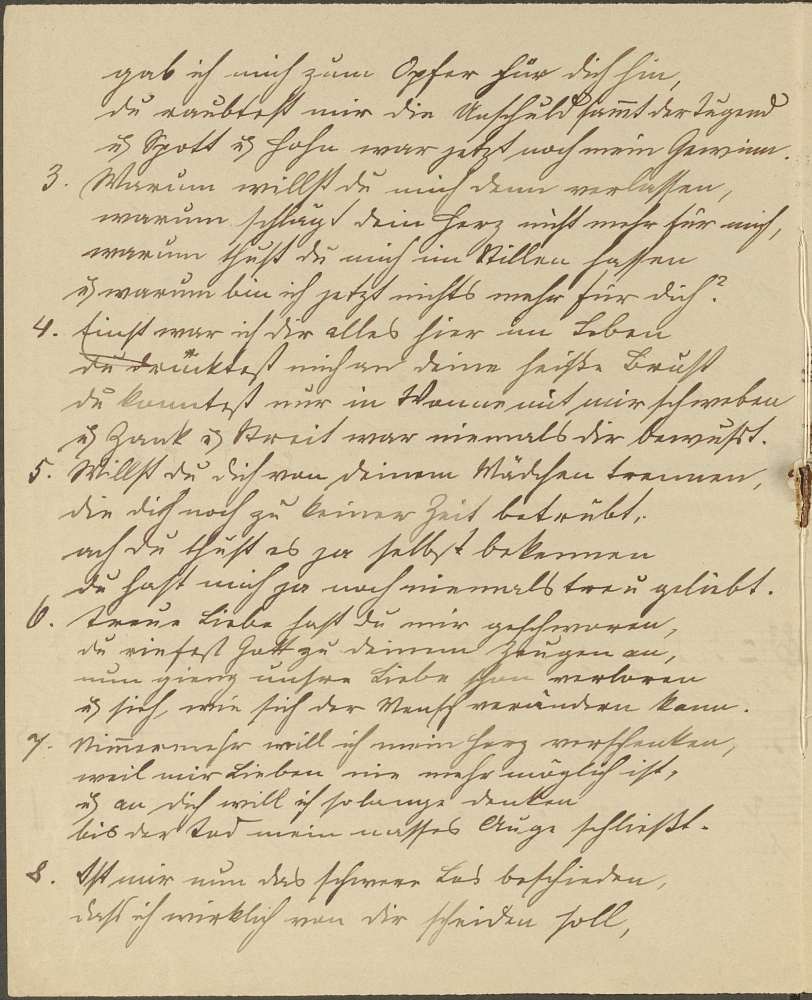 gab ich mich zum Opfer für dich hin,
du raubtest mir die Unschuld sammt der Tugend
u Spott u Hohn war jetzt noch mein Gewinn.
3. Warum willst du mich denn verlassen,
warum schlägt dein Herz nicht mehr für mich,
warum thust du mich im Stillen hassen
u warum bin ich jetzt nichts mehr für dich?
4. Einst war ich dir alles hier im Leben
du drücktest mich an deine heiße Brust
du konntest nur in Wonne mit mir schweben
u Zank u Streit war niemals dir bewußt.
5. Willst du dich von deinem Mädchen trennen,
die dich noch zu keiner Zeit betrübt,
ach du thust es ja selbst bekennen
du hast mich ja noch niemals treu geliebt.
6. Treue Liebe hast du mir geschworen,
du riefest Gott zu deinem Zeugen an,
nun gieng unsre Liebe schon verloren
u sieh, wie sich der Mensch verändern kann.
7. Nimmermehr will ich mein Herz verschenken,
weil mir Lieben nie mehr möglich ist,
u an dich will ich solange denken
bis der Tod mein nasses Auge schließt.
8. Ist mir nun das schwere Los beschieden,
daß ich wirklich von dir scheiden soll,